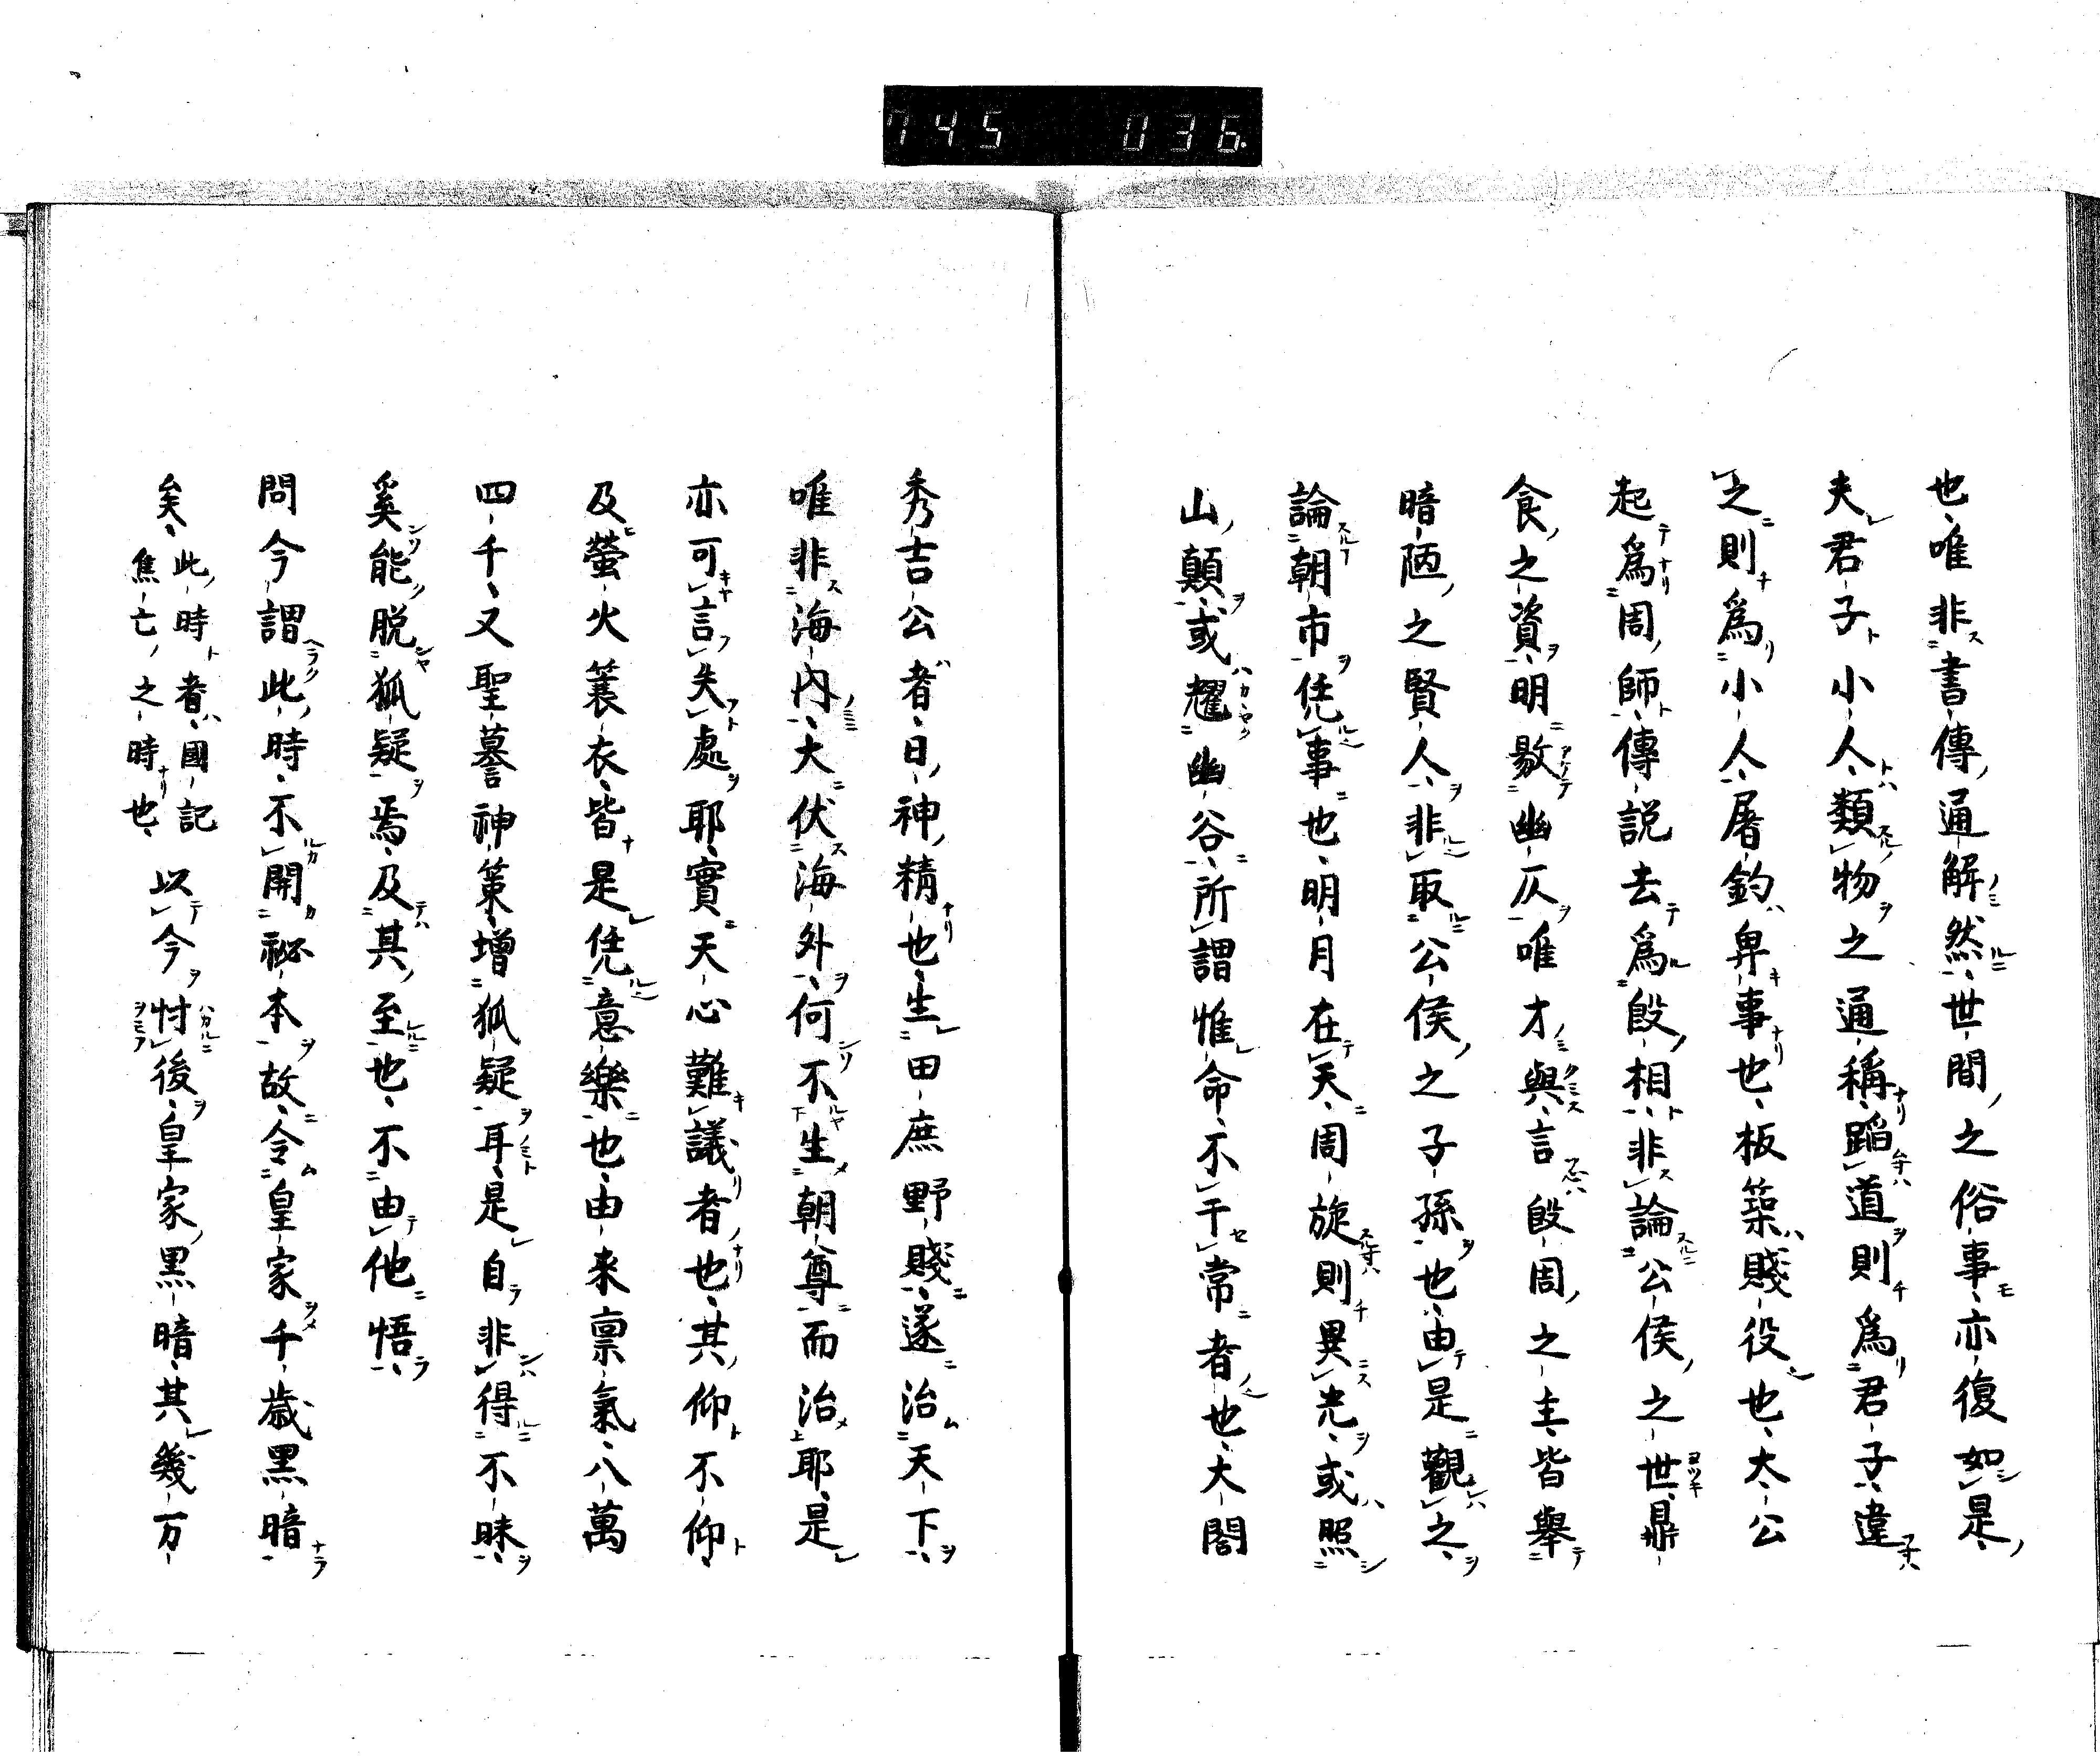 745 036
也唯非書傳通解然世間之俗事亦復如是
夫君子小人類物之通稱蹈道則爲君子違
之則爲小人屠釣卑事也板築賤役也太公
起爲周師傳説去爲殷相非論公侯之世鼎
食之資明敭幽仄唯才與言殷周之主皆舉
暗陋之賢人非取公侯之子孫也由是觀之
論朝市凭事也明月在天周旋則異光或照
山顛或耀幽谷所謂惟命不于常者也大閤
秀吉公者日神精也生田庶野賤遂治天下
唯非海内大伏海外何不生朝尊而治耶是
亦可言失處耶實天心難議者也其仰不仰
及螢火蓑衣皆是凭意樂也由来稟氣八萬
四千又聖謩神策増狐疑耳是自非得不昧
奚能脱狐疑焉及其至也不由他悟
問今謂此時不開祕本故令皇家千歳黒暗
矣此時者國記
焦亡之時也以今忖後皇家黒暗其幾万